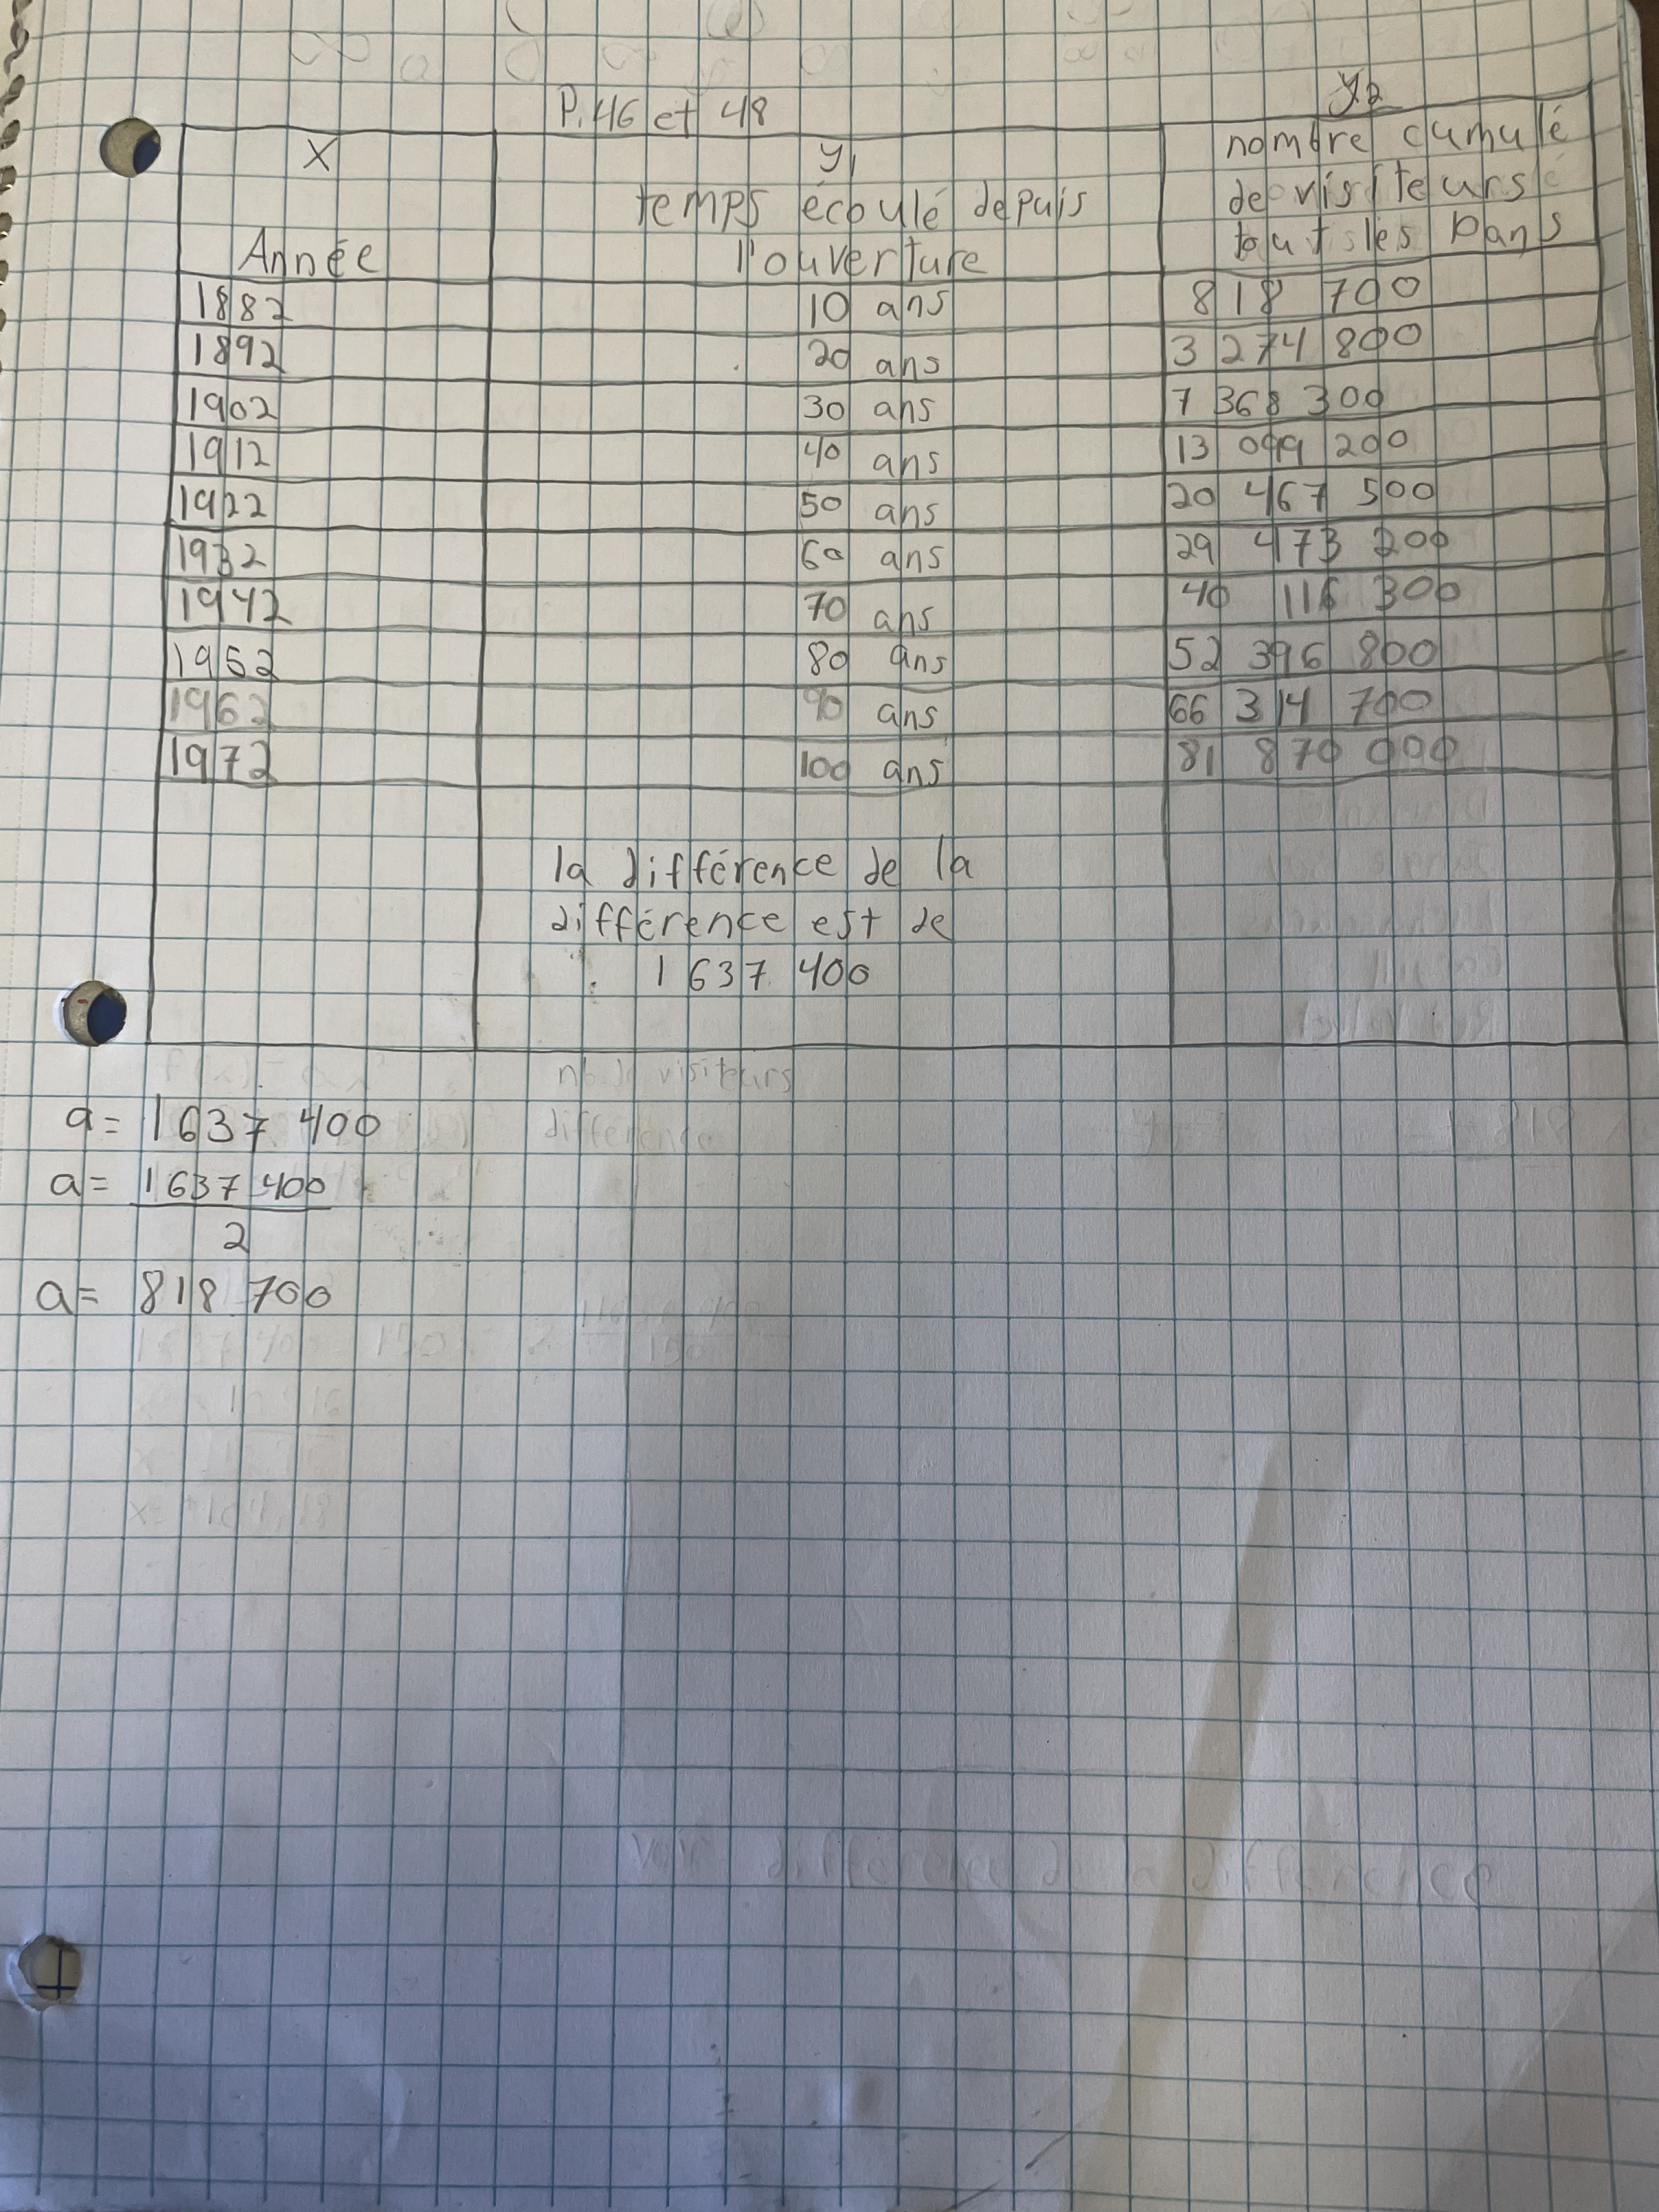 P. 46 et 48
y2
x
y1
nombre cumulé
temps écoulé depuis
de visiteurs
Année
l'ouverture
tout les Dans
1882 10 ans 818 700
1892 20 ans 3 274 800
1902 30 ans 7 368 300
1912 40 ans 13 099 200
1922 50 ans 20 467 500
1932 60 ans 29 473 200
1942 70 ans 40 116 300
1952 80 ans 52 396 800
1962 90 ans 66 314 700
1972 100 ans 81 870 000
la différence de la
différence est de
1 637 400
nb de visiteurs
a= 1 637 400
différence
a= 1 637 400
2
a= 818 700
voir différence de la différence